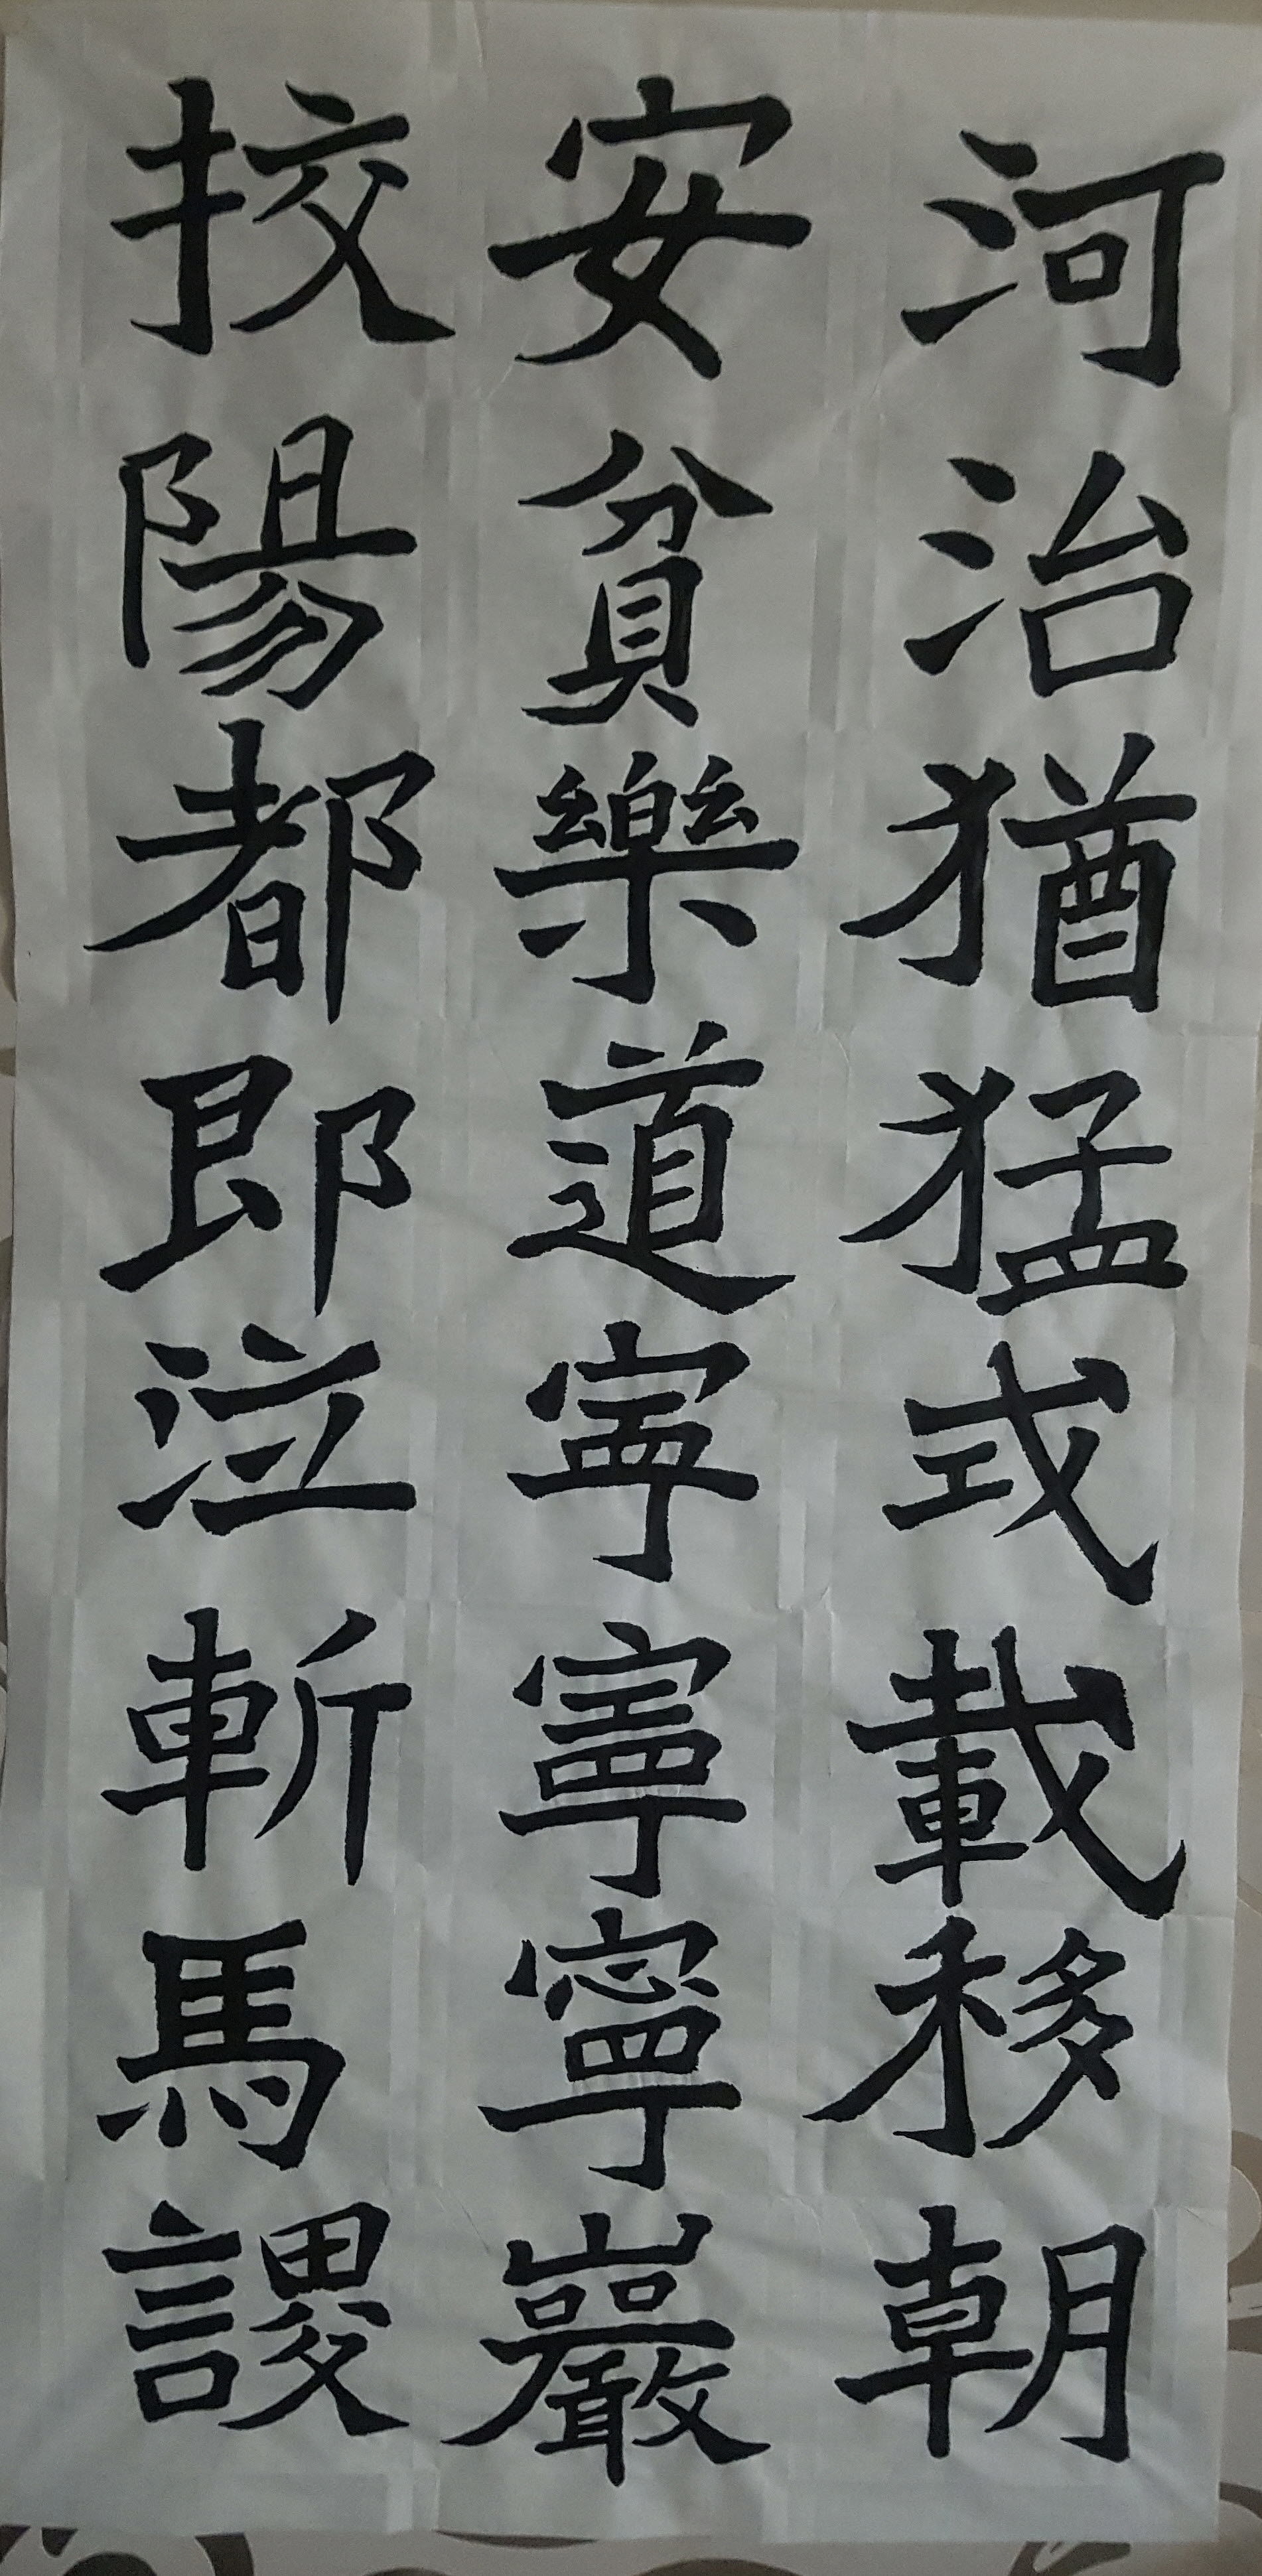 河治猶猛式載移朝
安貧樂道寧巖
挍陽都即泣斬馬謖